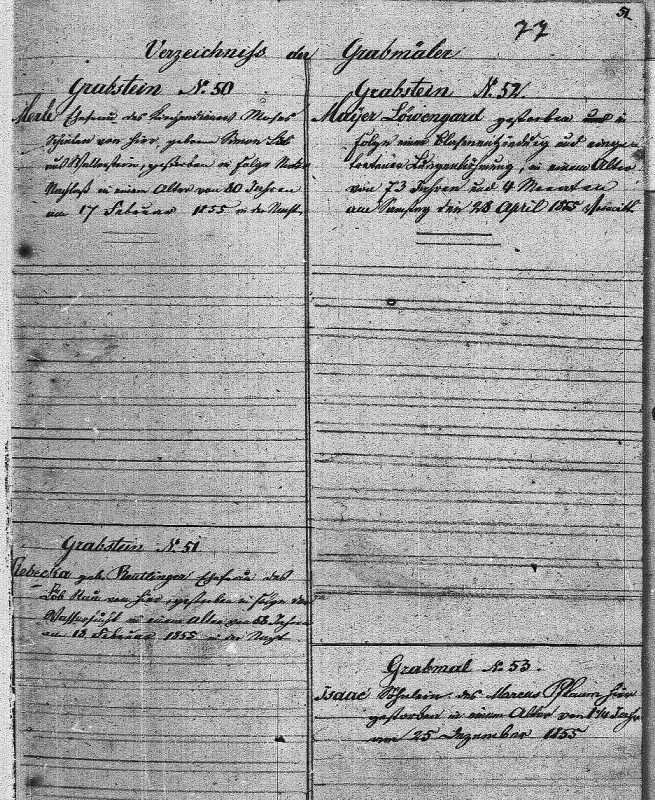 51
77
Verzeichniss der Grabmäler
Grabstein N. 50
Merle Ehefrau des Moses
von hier, geborne Simon Löb
aus Wallerstein, gestorben in Folge
in einem Alter von 80 Jahren
am 17 Februar 1855 in der Nacht.
Grabstein N. 51
Rebecka geb. Reutlinger Ehefrau des
Löb von hier, gestorben in Folge der
Wassersucht in einem Alter von 58 Jahren
am 18 Februar 1855 in der Nacht
Grabstein N. 52
Maijer Löwengard gestorben in
Folge einer und
in einem Alter
von 73 Jahren und 4 Monaten
am Samstag den 28 April 1855
Grabmal N. 53.
Isaac Söhnlein des Marcus Pflaum hier
gestorben in einem Alter von 1¼ Jahr
am 25 Dezember 1855